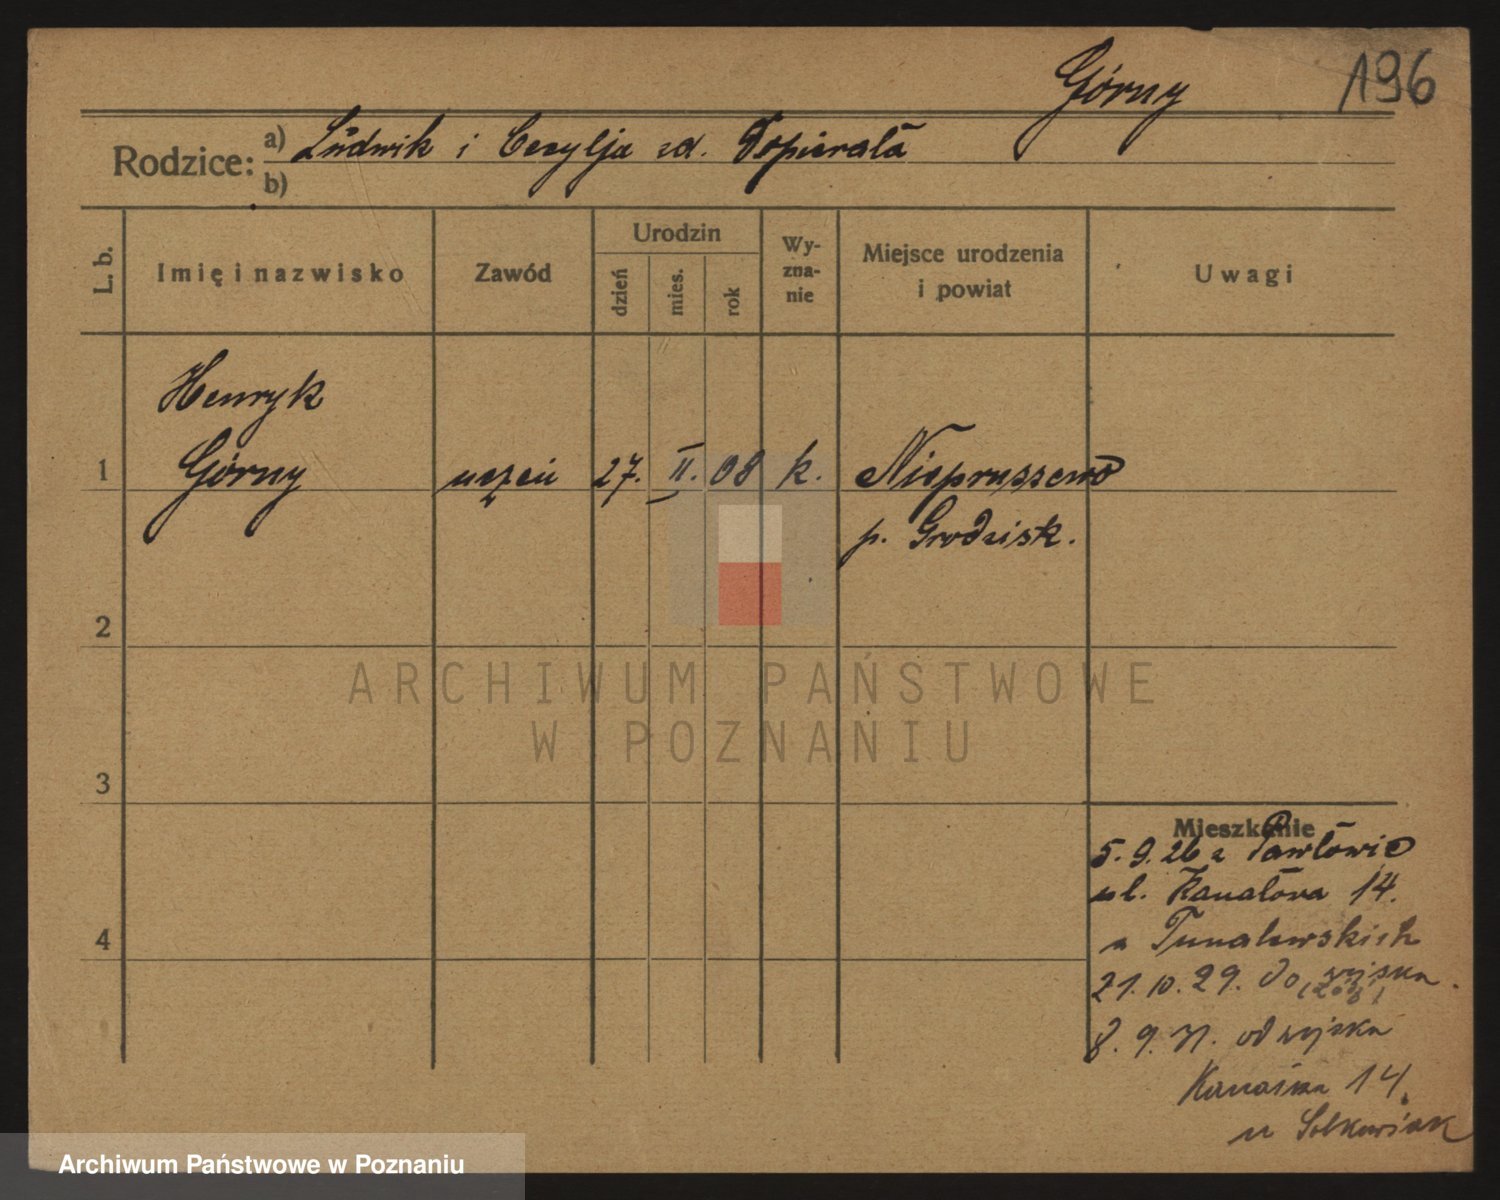 Górny 196
Rodzice: a) Ludwik i Cecylja zd. Topierała
b)
L. b. Imię i nazwisko Zawód Urodzin dzień mies. rok Wy-zna-nie Miejsce urodzenia i powiat Uwagi
Henryk
1 Górny uczeń 27. II. 08 k. Niepruszewo
p. Grodzisk.
2
3
4
Mieszkanie
5. 9. 26 z Pawłowic
ul. Kanałowa 14.
21. 10. 29. do wojska.
8. 9. 31. od wojska
14.
u
ARCHIWUM PAŃSTWOWE
W POZNANIU
Archiwum Państwowe w Poznaniu